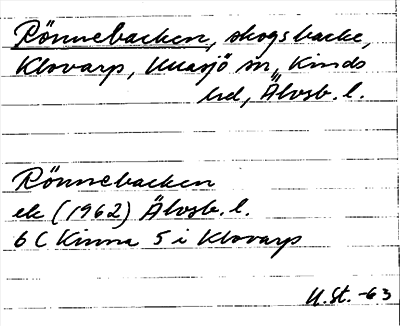 Rönnebacken, skogsbacke,
Klovarp, Älvsb. l.
Rönnebacken
ek (1962) Älvsb. l.
6 C Kinna 5 i Klovarp
U. St. -63